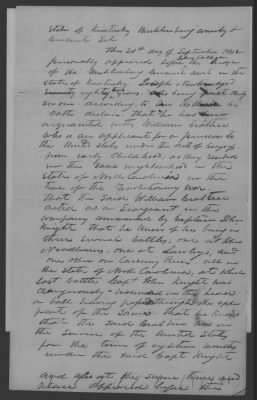 State of Kentucky Muhlenburg County &
General Sct
This 20 day of September 1842
personally appeared before the Judge
of the Muhlenburg Circuit Court in the
State of Kentucky Joseph
eighty years who being duly
sworn according to law
oath declare that he has been
acquainted with William Crabtree
who is an applicant for a pension to
the United States under the acts of Congress
from early Childhood, as they resided
in the same neighbourhood in the
State of North Carolina in the
time of the Revolutionary War
that the said William Crabtree
acted as a Sergeant in the
company commanded by Captain John
Knight that he knew of his being in
three several battles, one at the
one at Lindleys, and
one other on Raeburn Town all in
the State of North Carolina, at which
last battle Capt John Knight was
dangerously wounded in the
a ball having passed through the upper
part of the same. that he knows
that the said Crabtree was in
the service of the United States
for the term of eighteen months
under the said Capt Knight
And also at the same time and
place appeared before the